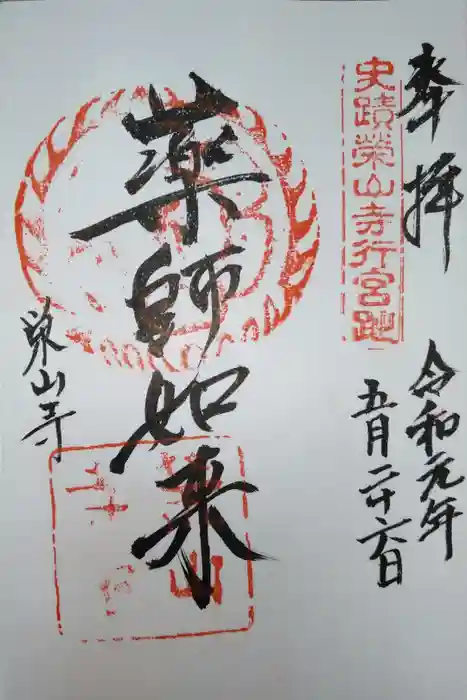 奉拝
史蹟榮山寺行宮跡
令和元年
五月二十六日
薬師如来
栄山寺